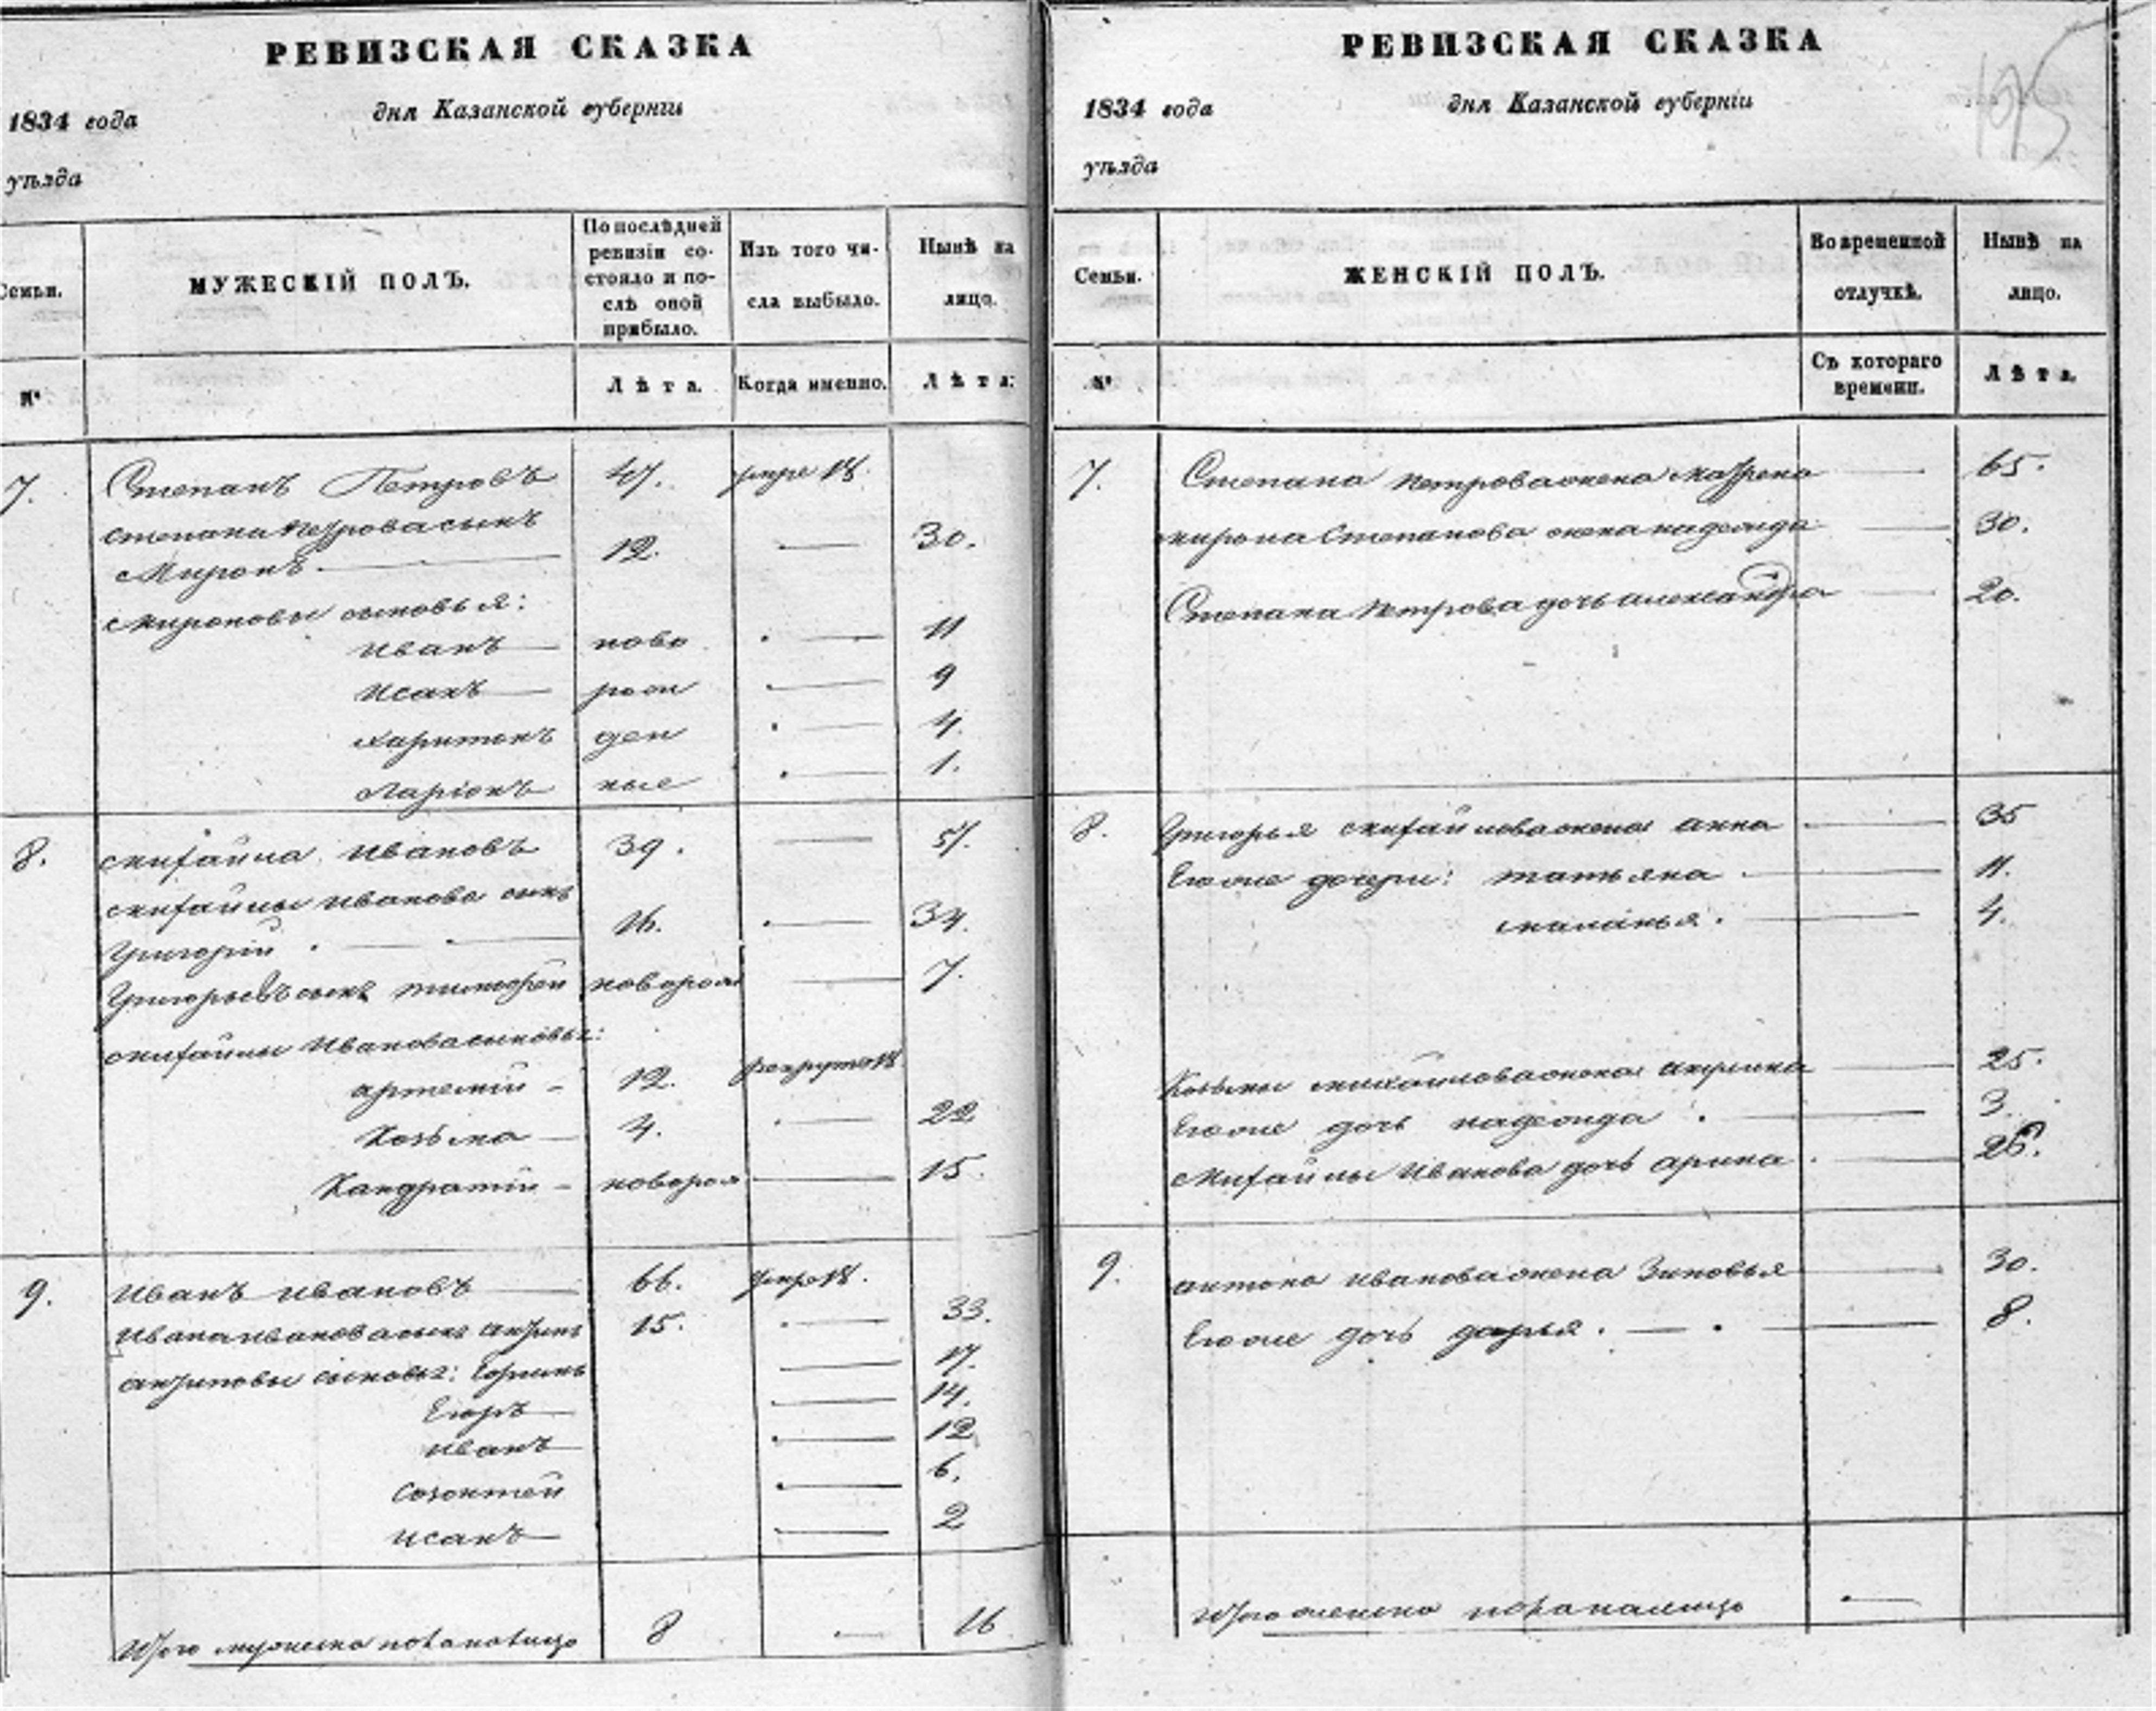 РЕВИЗСКАЯ СКАЗКА
1834 года
дня Казанской губерніи
уѣзда
Семьи.
МУЖЕСКІЙ ПОЛЪ.
По послѣдней ревизіи состояло и послѣ оной прибыло.
Изъ того числа выбыло.
Нынѣ на лицо.
№
Лѣта.
Когда именно.
Лѣта:
7. Степанъ Петровъ 47. умре 18
степана петрова сынъ
Миронъ. 12. 30.
мироновы сыновья:
иванъ ново 11
исакъ рож 9
харитонъ ден 4.
Ларіонъ ные 1.
8. михайла ивановъ 39. 57.
михайлы иванова сынъ
григорій 16. 34.
григорьевъ сынъ тимофей новорож 7.
михайлы иванова сыновья:
артемій 12. рекруты 18
козьма 4. 22
кандратій новорож 15.
9. иванъ ивановъ 66. умре 18.
ивана иванова сынъ 15. 33.
сыновья: 17.
егоръ 14.
иванъ 12
созонтей 6.
исакъ 2
Итого мужеска пола налицо 8 16
РЕВИЗСКАЯ СКАЗКА
195
1834 года
дня Казанской губерніи
уѣзда
Семьи.
ЖЕНСКІЙ ПОЛЪ.
Во временной отлучкѣ.
Нынѣ на лицо.
№
Съ котораго времени.
Лѣта.
7. Степана петрова жена матрена 65.
мирона степанова жена надежда 30.
Степана петрова дочь александра 20.
8. григорья михайлова жена анна 35
Его же дочери: татьяна 11.
маланья. 4.
козьмы михайлова жена акулина 25.
Его же дочь надежда 3.
Михайлы иванова дочь арина 26.
9. антона иванова жена зиновья 30.
Его же дочь дарья. 8.
Итого женска пола налицо